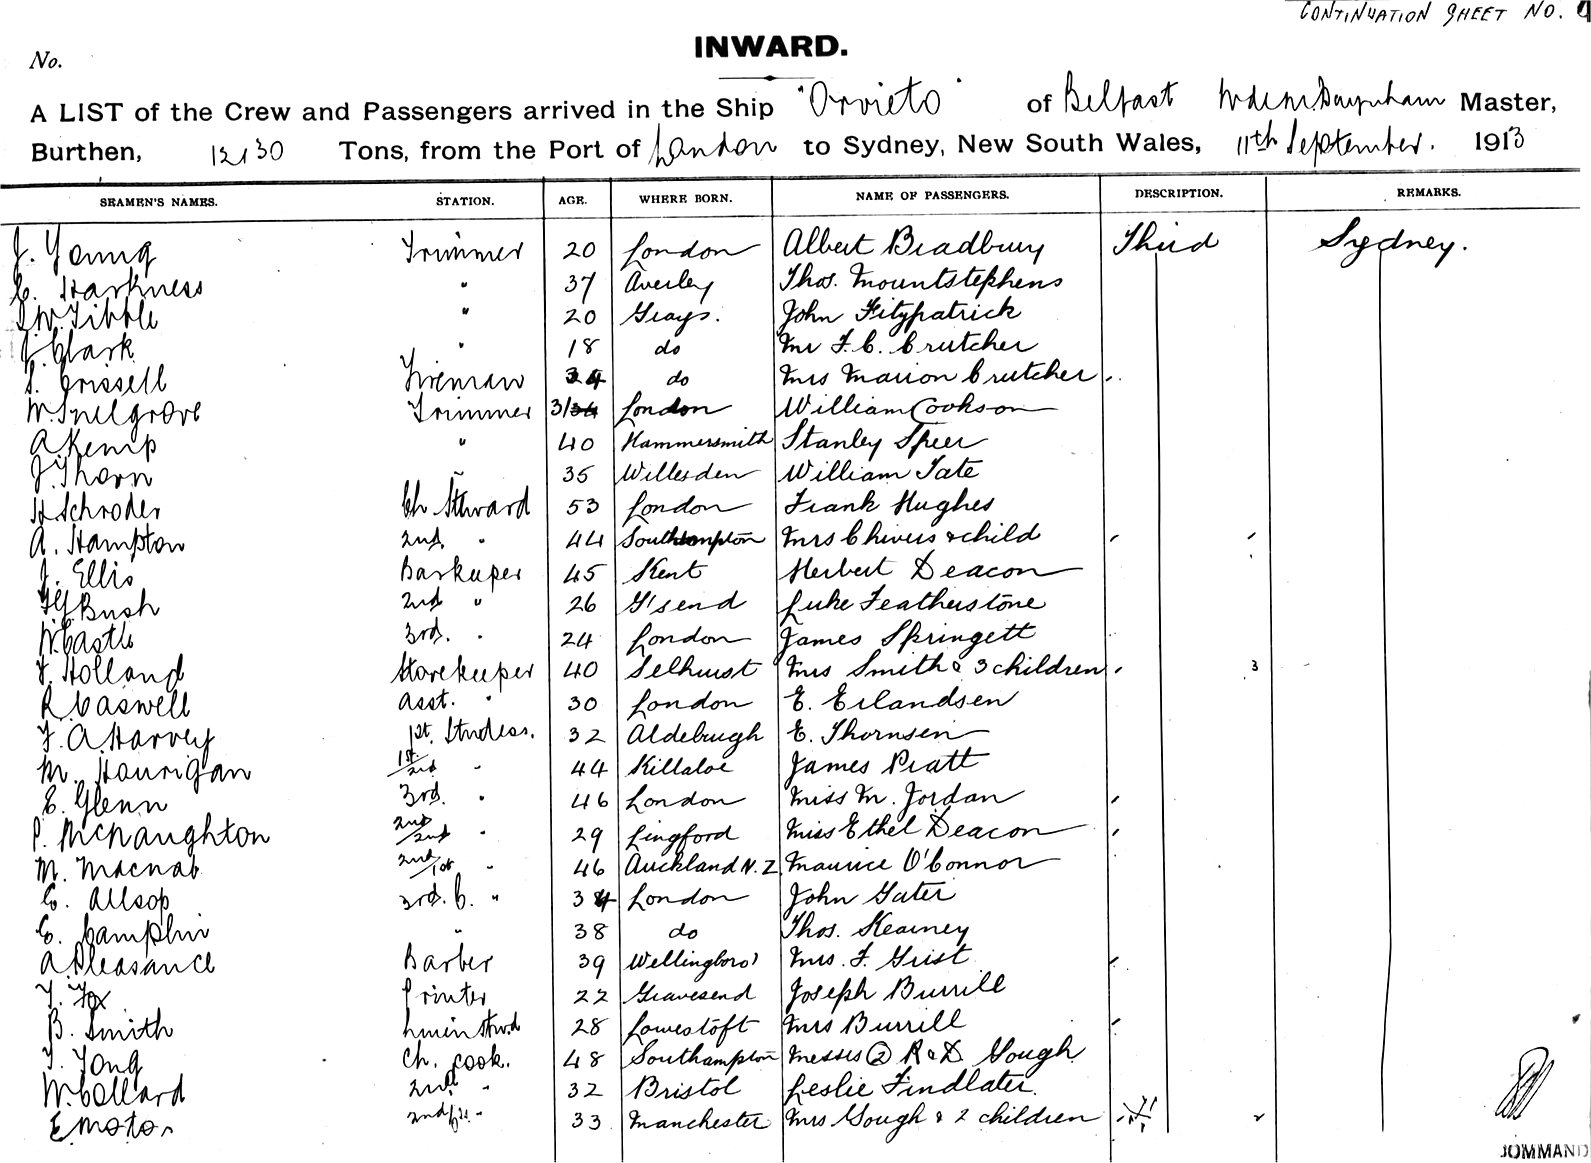 CONTINUATION SHEET NO. 9
INWARD.
No.
A LIST of the Crew and Passengers arrived in the Ship "Orvieto" of Belfast Master,
Burthen, 12130 Tons, from the Port of London to Sydney, New South Wales, 11th September. 1913
SEAMEN'S NAMES. STATION. AGE. WHERE BORN. NAME OF PASSENGERS. DESCRIPTION. REMARKS.
J. Young Trimmer 20 London Albert Bradbury Third Sydney.
C. Harkness " 37 Averley Thos. Mountstephens
W. Tibble " 20 Grays. John Fitzpatrick
J. Clark " 18 do Mr F. C. Crutcher
S. Grissell Fireman 34 do Mrs Marion Crutcher
W. Snelgrove Trimmer 31 34 London William Cookson
A. Kemp " 40 Hammersmith Stanley Speer
J. Thorn " 35 Willesden William Tate
H. Schroder Ch. Steward 53 London Frank Hughes
A. Hampton 2nd. " 44 Southampton Mrs Chivers & child
J. Ellis Barkeeper 45 Kent Herbert Deacon
Bush 2nd " 26 G'send Luke Featherstone
W. Castle 3rd. " 24 London James Springett
F. Holland Storekeeper 40 Selhurst Mrs Smith & 3 children 3
R. Caswell Asst. " 30 London E. Erlandsen
F. A. Harvey 1st. Stewdess. 32 Aldebrugh E. Thornsen
M. Hourigan 1st/2nd " 44 Killaloe James Pratt
E. Glenn 3rd. " 46 London Miss M. Jordan
P. McNaughton 2nd/2nd " 29 Lingford Miss Ethel Deacon
M. Macnab 2nd/1st " 46 Auckland N.Z Maurice O'Connor
E. Allsop 3rd. C. " 34 London John Gater
E. Camplin " 38 do Thos. Kearney
A. Pleasance Barber 39 Wellingboro' Mrs. F. Grist
T. Fox Printer 22 Gravesend Joseph Burrill
B. Smith 28 Lowestoft Mrs Burrill
T. Tong Ch. Cook. 48 Southampton Messrs (2) R & D Gough
W. Collard 2nd " 32 Bristol Leslie Findlater.
E Moton 33 Manchester Mrs Gough & 2 children 2